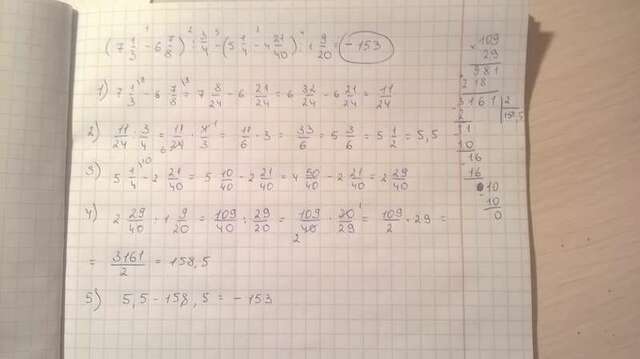 (7 1/3 - 6 7/8) : 3/4 - (5 1/4 - 4 21/40) : 1 9/20 = -153
1) 7 1/3 - 6 7/8 = 7 8/24 - 6 21/24 = 6 32/24 - 6 21/24 = 11/24
2) 11/24 : 3/4 = 11/24 · 4/3 = 11/6 · 3 = 33/6 = 5 3/6 = 5 1/2 = 5,5
3) 5 1/4 - 2 21/40 = 5 10/40 - 2 21/40 = 4 50/40 - 2 21/40 = 2 29/40
4) 2 29/40 : 1 9/20 = 109/40 : 29/20 = 109/40 · 20/29 = 109/2 · 29 =
= 3161/2 = 158,5
5) 5,5 - 158,5 = -153
× 109
29
981
218
3161 | 2
2 158,5
11
10
16
16
10
10
0